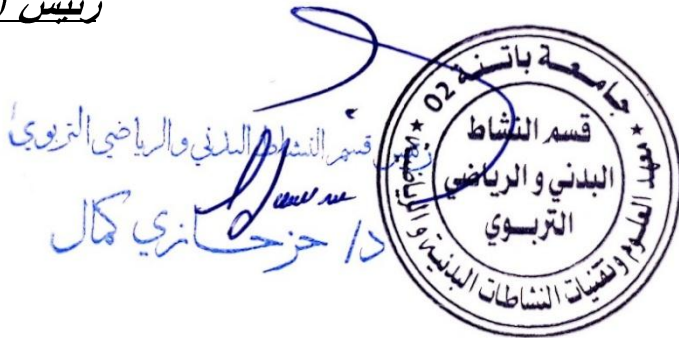 رئيس
رئيس قسم النشاط البدني والرياضي التربوي
د/ حزحازي كمال
جامعة باتنة 02
معهد العلوم وتقنيات النشاطات البدنية والرياضية
قسم النشاط
البدني و الرياضي
التربوي